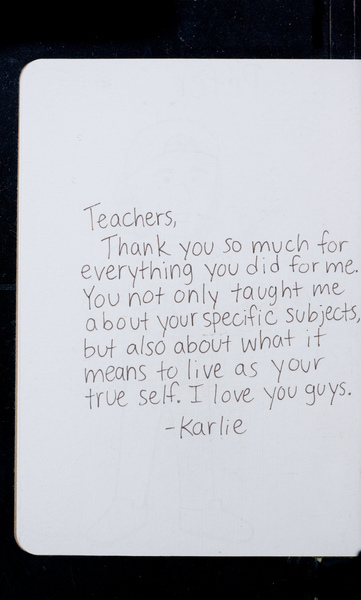 Teachers,
Thank you so much for
everything you did for me.
You not only taught me
about your specific subjects,
but also about what it
means to live as your
true self. I love you guys.
-Karlie